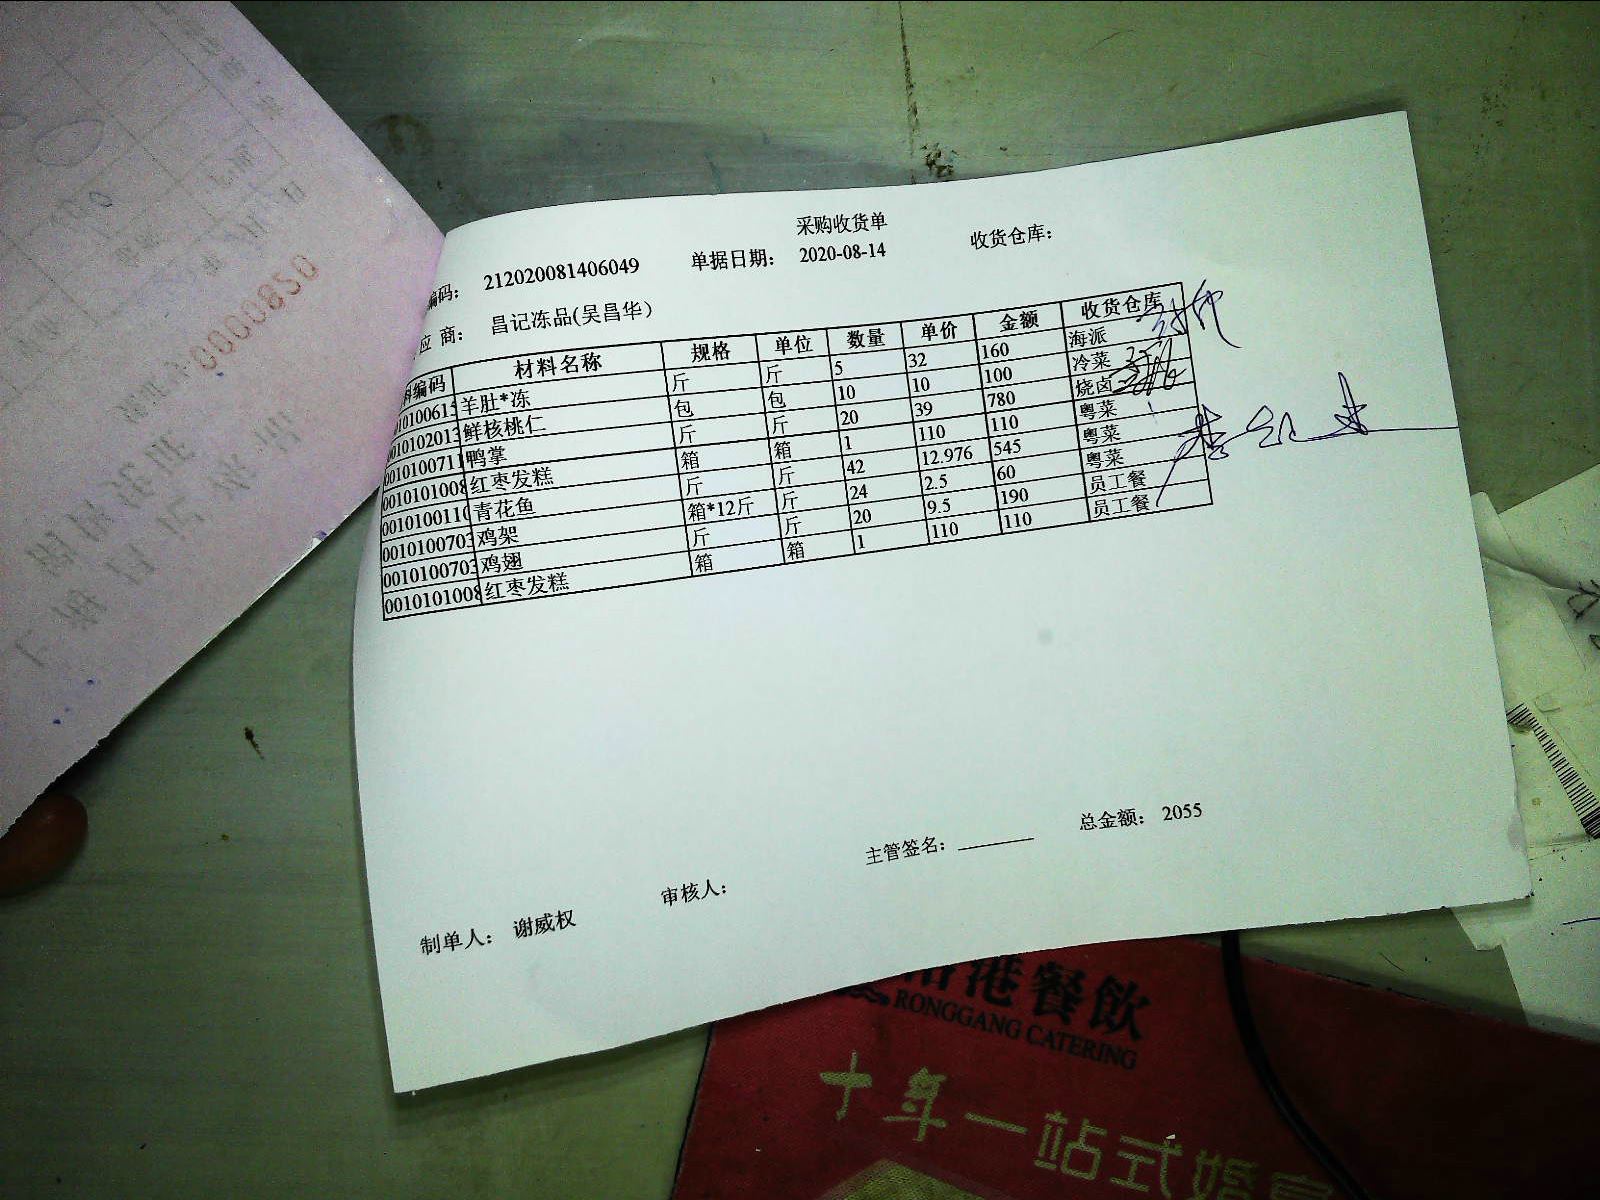 采购收货单
编码： 212020081406049 单据日期： 2020-08-14 收货仓库：
应 商： 昌记冻品(吴昌华)
编码 材料名称 规格 单位 数量 单价 金额 收货仓库
0010100615 羊肚*冻 斤 斤 5 32 160 海派
0010102013 鲜核桃仁 包 包 10 10 100 冷菜
001010071 鸭掌 斤 斤 20 39 780 烧卤
0010101008 红枣发糕 箱 箱 1 110 110 粤菜
001010011 青花鱼 斤 斤 42 12.976 545 粤菜
0010100703 鸡架 箱*12斤 斤 24 2.5 60 粤菜
0010100703 鸡翅 斤 斤 20 9.5 190 员工餐
0010101008 红枣发糕 箱 箱 1 110 110 员工餐
主管签名： 总金额： 2055
制单人： 谢威权 审核人：
0000850
港餐飲
RONGGANG CATERING
十年一站式